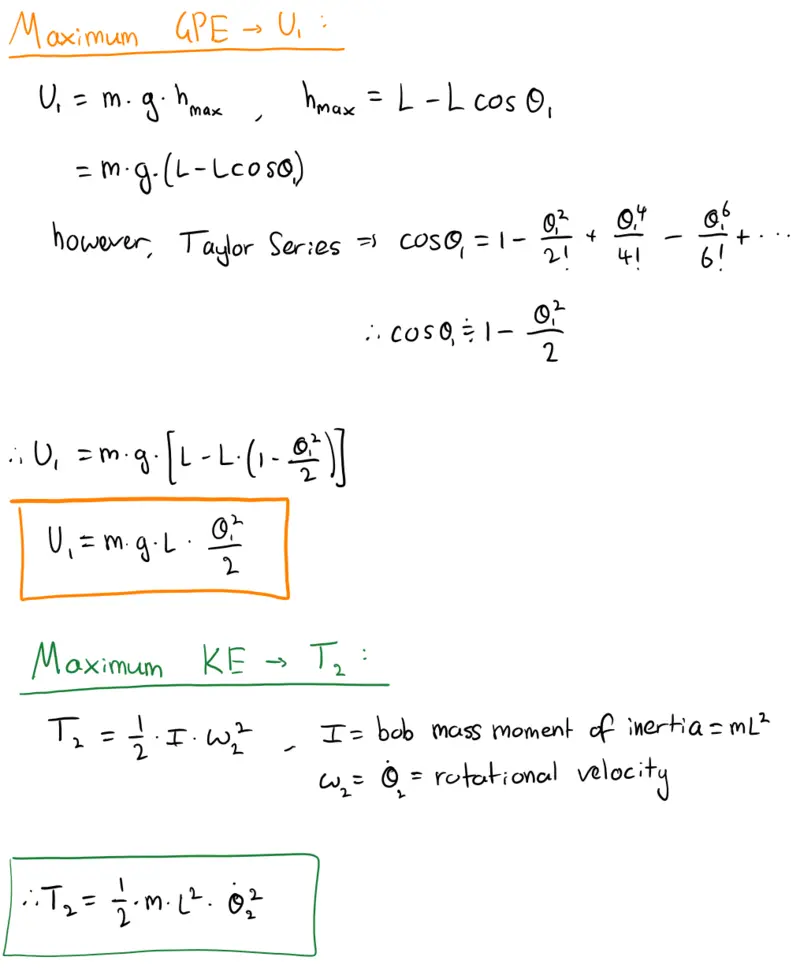 Maximum GPE → U₁ :
U₁ = m · g · hₘₐₓ , hₘₐₓ = L − L cos θ₁
= m · g · (L − L cos θ₁)
however, Taylor Series ⇒ cos θ₁ = 1 − θ₁²/2! + θ₁⁴/4! − θ₁⁶/6! + ···
∴ cos θ₁ ≑ 1 − θ₁²/2
∴ U₁ = m · g · [L − L · (1 − θ₁²/2)]
U₁ = m · g · L · θ₁²/2
Maximum KE → T₂ :
T₂ = 1/2 · I · ω₂² , I = bob mass moment of inertia = mL²
ω₂ = θ̇₂ = rotational velocity
∴ T₂ = 1/2 · m · L² · θ̇₂²